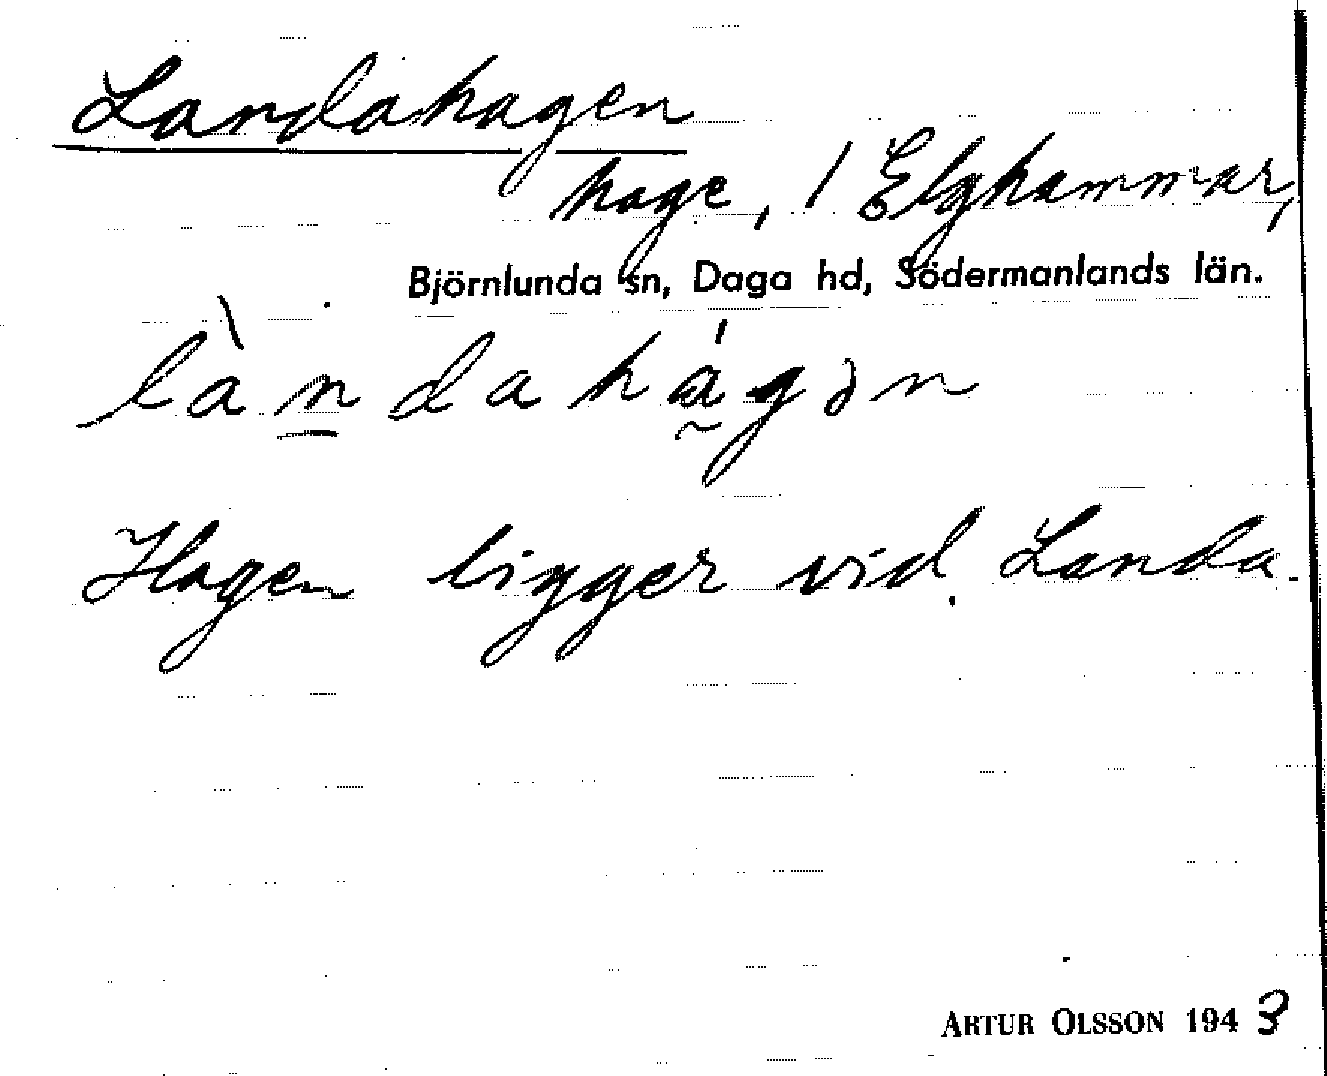 Landahagen
hage, / Elghammar,
Björnlunda sn, Daga hd, Södermanlands län.
là̀n̲dahá̰gən
Hagen ligger vid Landa.
ARTUR OLSSON 1943